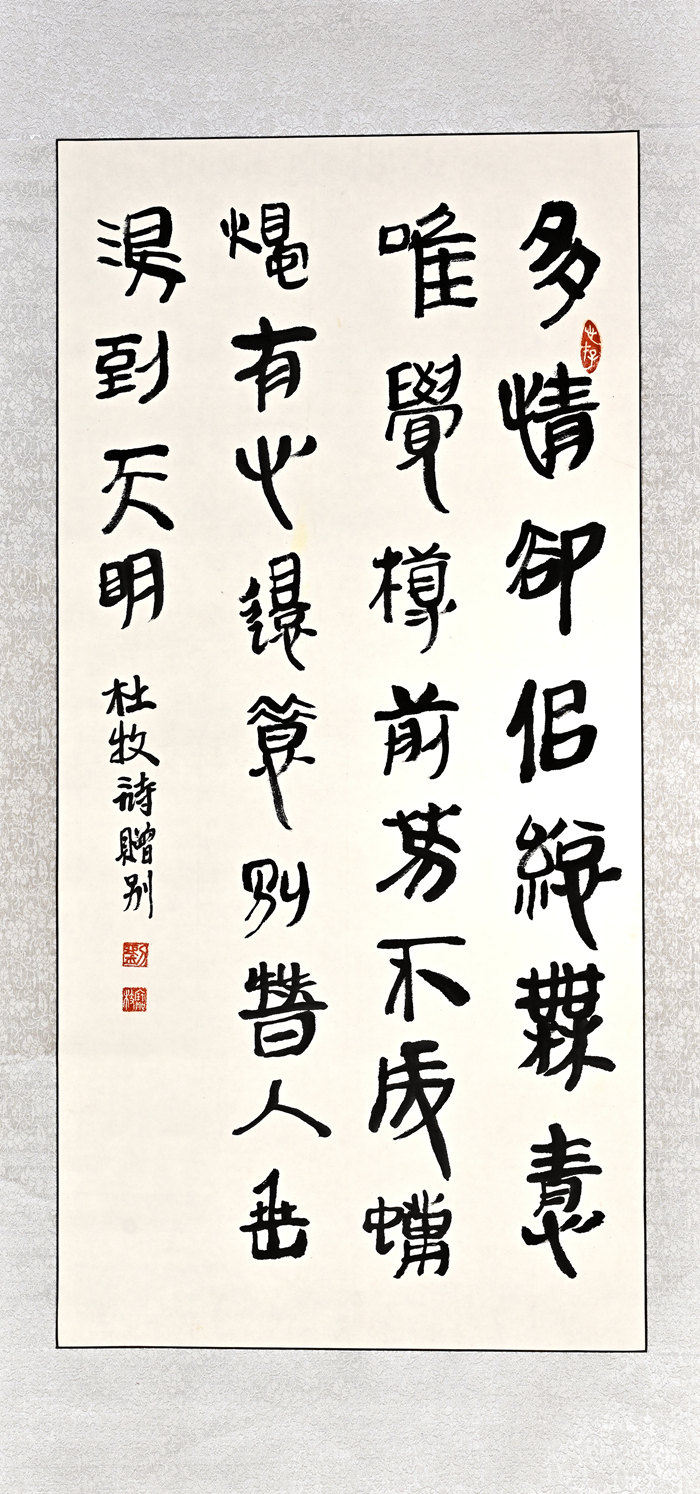 多情卻佀總無情
唯覺樽前笑不成蠟
燭有心還別替人垂
淚到天明
杜牧詩贈別